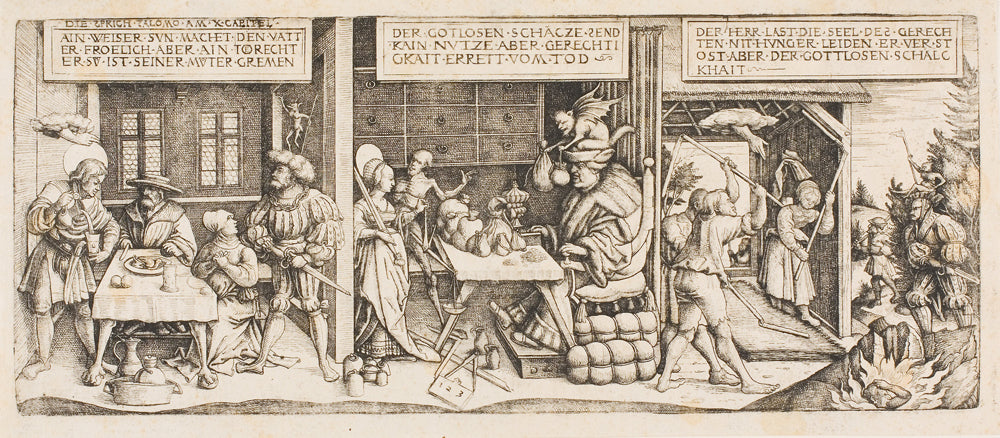 DIE SPRICH SALOMO·AM·X·CAPITEL·
AIN·WEISER·SVN·MACHET·DEN·VATT
ER·FROELICH·ABER·AIN·TOORECHT
ER·SV̄·IST·SEINER·MVTER·GREMEN
DER·GOTLOSEN·SCHÄCZE·SEND
KAIN·NVTZE·ABER·GERECHTI
GKAIT·ERRETT·VOM·TOD
DER·HERR·LAST·DIE·SEEL·DES·GERECH
TEN·NIT·HVNGER·LEIDEN·ER·VERST
OST·ABER·DER·GOTTLOSEN·SCHALC
KHAIT